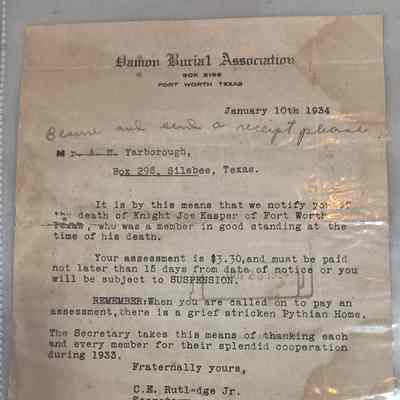 Damon Burial Association
BOX 2196
FORT WORTH TEXAS
January 10th 1934
Besure and send a receipt please,
Mr. A. M. Yarborough,
Box 298, Silsbee, Texas.
It is by this means that we notify you of
the death of Knight Joe Kasper of Fort Worth
Texas, who was a member in good standing at the
time of his death.
Your assessment is $3.30,and must be paid
not later than 15 days from date of notice or you
will be subject to SUSPENSION.
REMEMBER:When you are called on to pay an
assessment,there is a grief stricken Pythian Home.
The Secretary takes this means of thanking each
and every member for their splendid cooperation
during 1933.
Fraternally yours,
C.E. Rutledge Jr.
Secretary